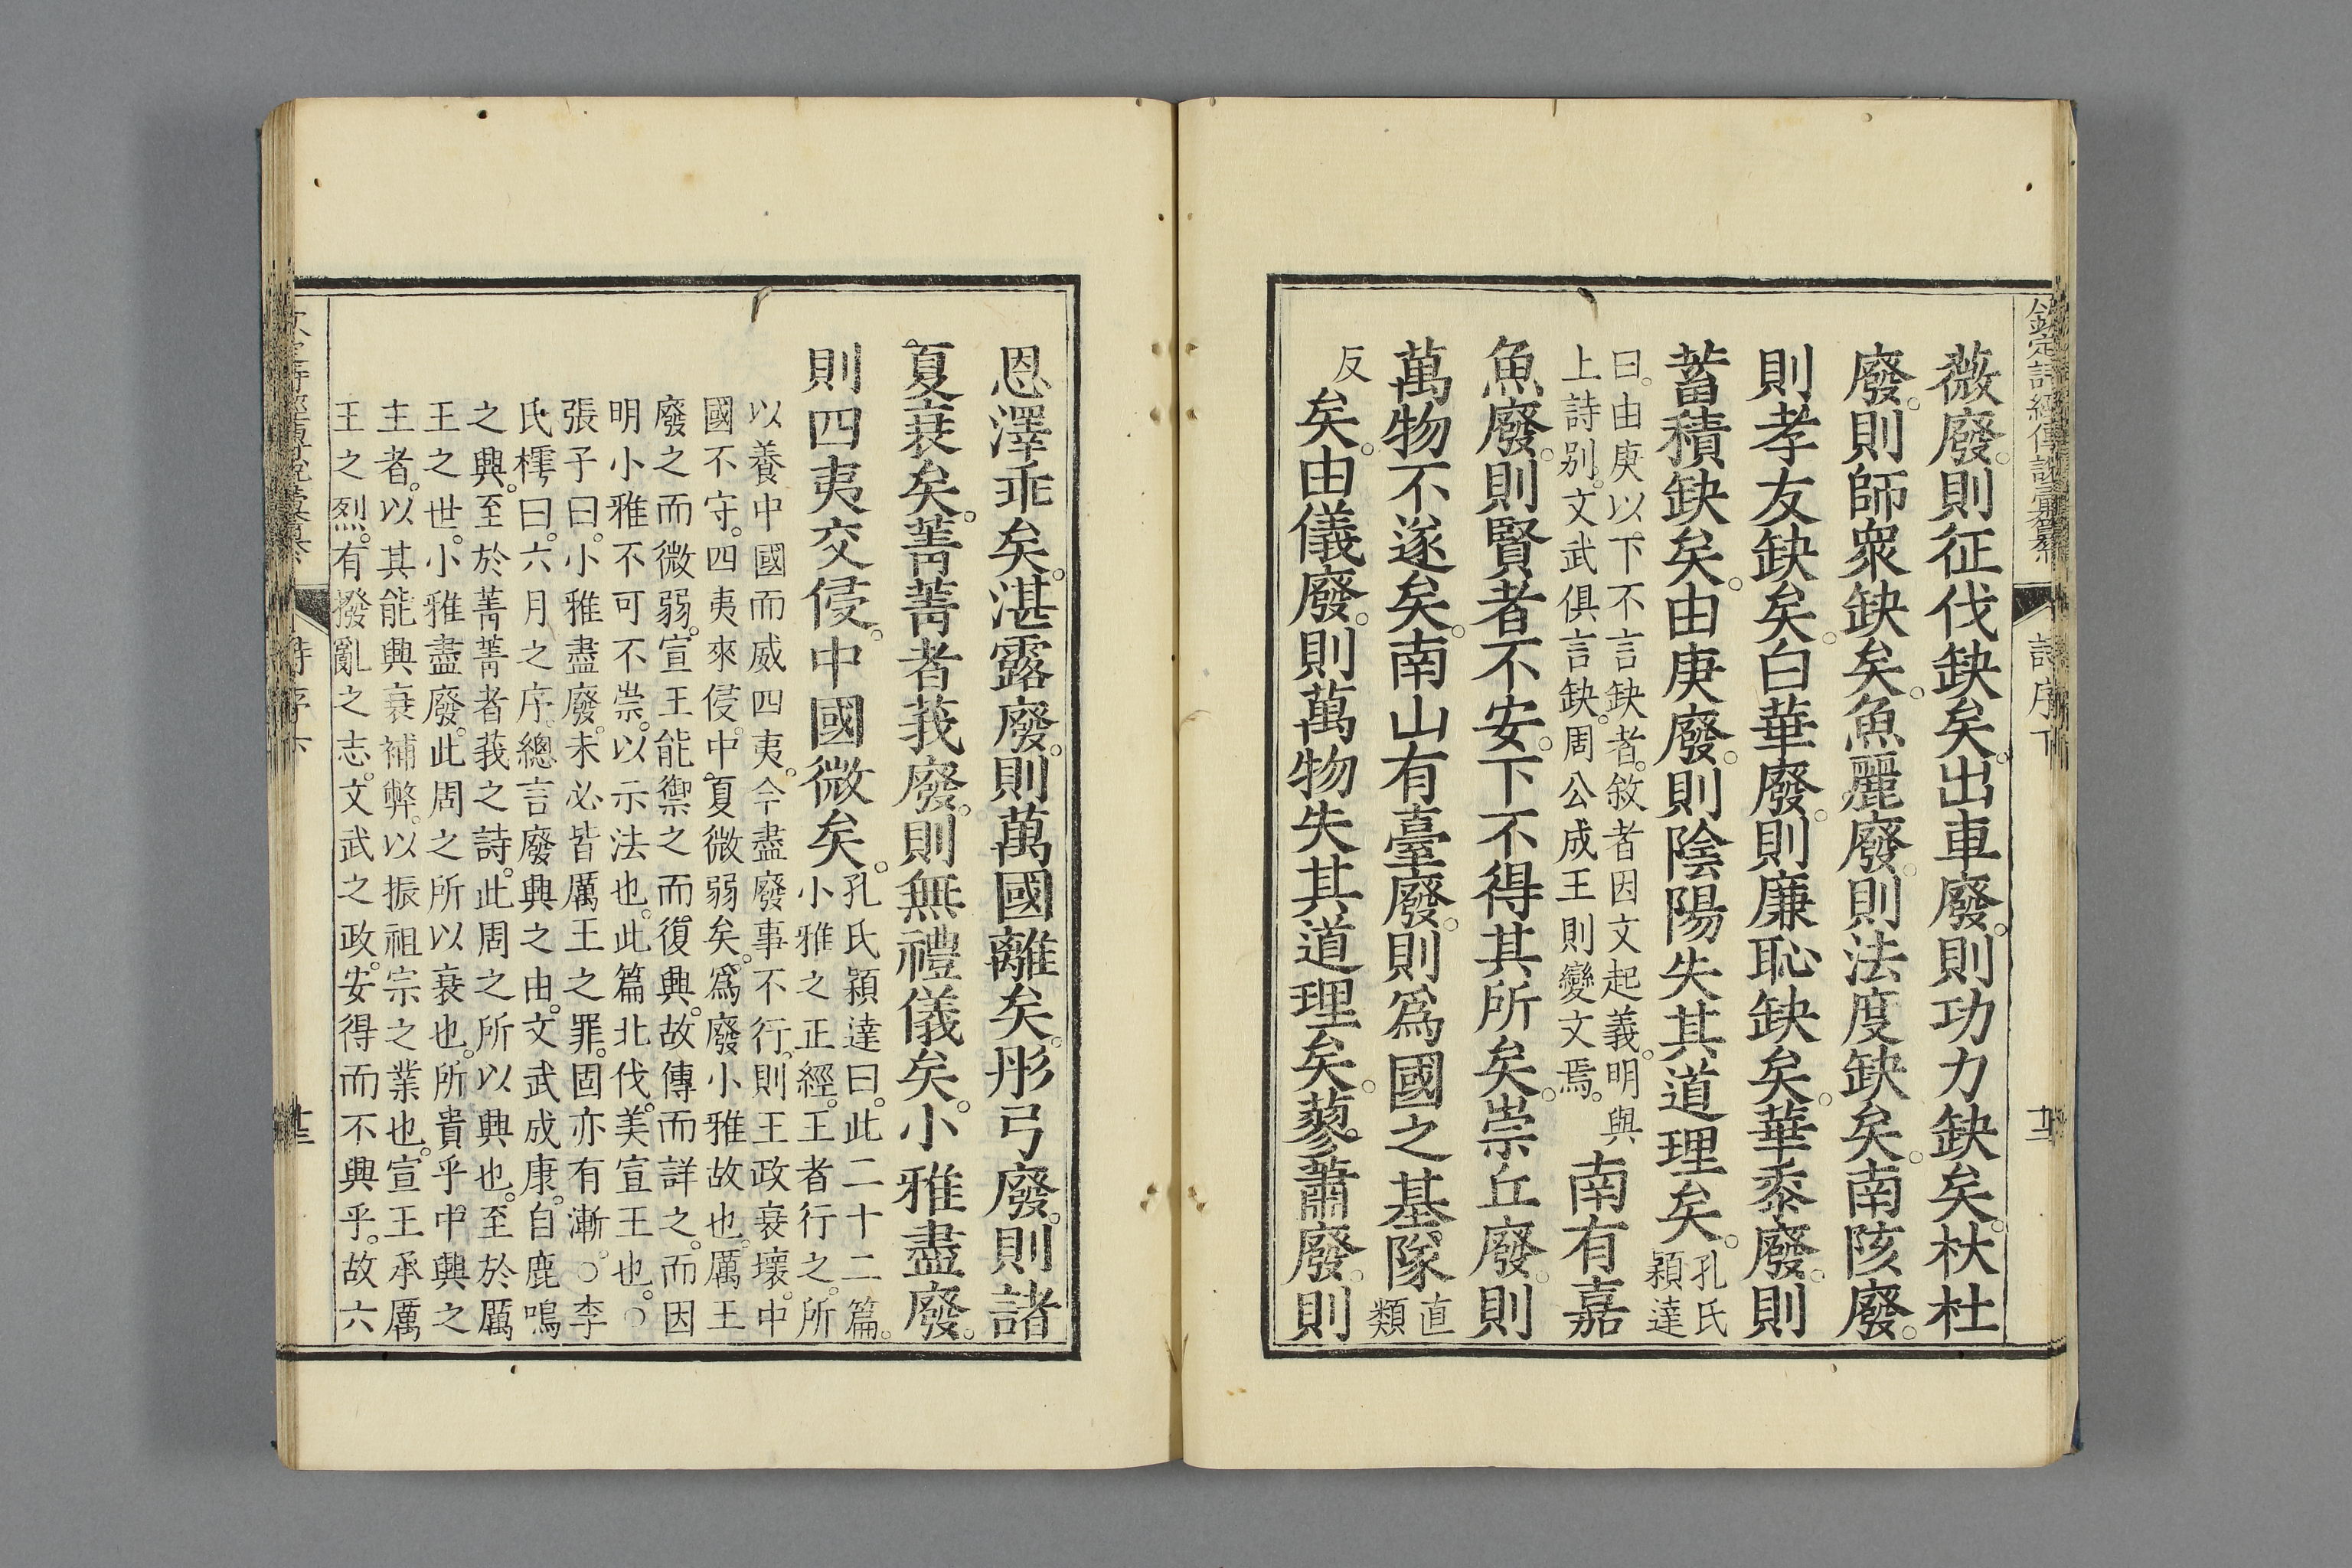 欽定詩經傳說彙纂
詩序下
薇廢。則征伐缺矣。出車廢。則功力缺矣。杕杜
廢。則師衆缺矣。魚麗廢。則法度缺矣。南陔廢。
則孝友缺矣。白華廢。則廉恥缺矣。華黍廢。則
蓄積缺矣。由庚廢。則陰陽失其道理矣。孔氏
穎達
曰。由庚以下不言缺者。敘者因文起義。明與
上詩别。文武俱言缺。周公成王則變文焉。南有嘉
魚廢。則賢者不安。下不得其所矣。崇丘廢。則
萬物不遂矣。南山有臺廢。則爲國之基隊直
類
反矣。由儀廢。則萬物失其道理矣。蓼蕭廢。則
恩澤乖矣。湛露廢。則萬國離矣。彤弓廢。則諸
夏衰矣。菁菁者莪廢。則無禮儀矣。小雅盡廢。
則四夷交侵。中國微矣。孔氏穎達曰。此二十二篇。
小雅之正經。王者行之。所
以養中國而威四夷。今盡廢事不行。則王政衰壞。中
國不守。四夷來侵。中夏微弱矣。爲廢小雅故也。厲王
廢之而微弱。宣王能禦之而復興。故傳而詳之。而因
明小雅不可不崇。以示法也。此篇北伐。美宣王也。○
張子曰。小雅盡廢。未必皆厲王之罪。固亦有漸。○李
氏樗曰。六月之序。總言廢興之由。文武成康。自鹿鳴
之興。至於菁菁者莪之詩。此周之所以興也。至於厲
王之世。小雅盡廢。此周之所以衰也。所貴乎中興之
主者。以其能興衰補弊。以振祖宗之業也。宣王承厲
王之烈。有撥亂之志。文武之政。安得而不興乎。故六
詩序下